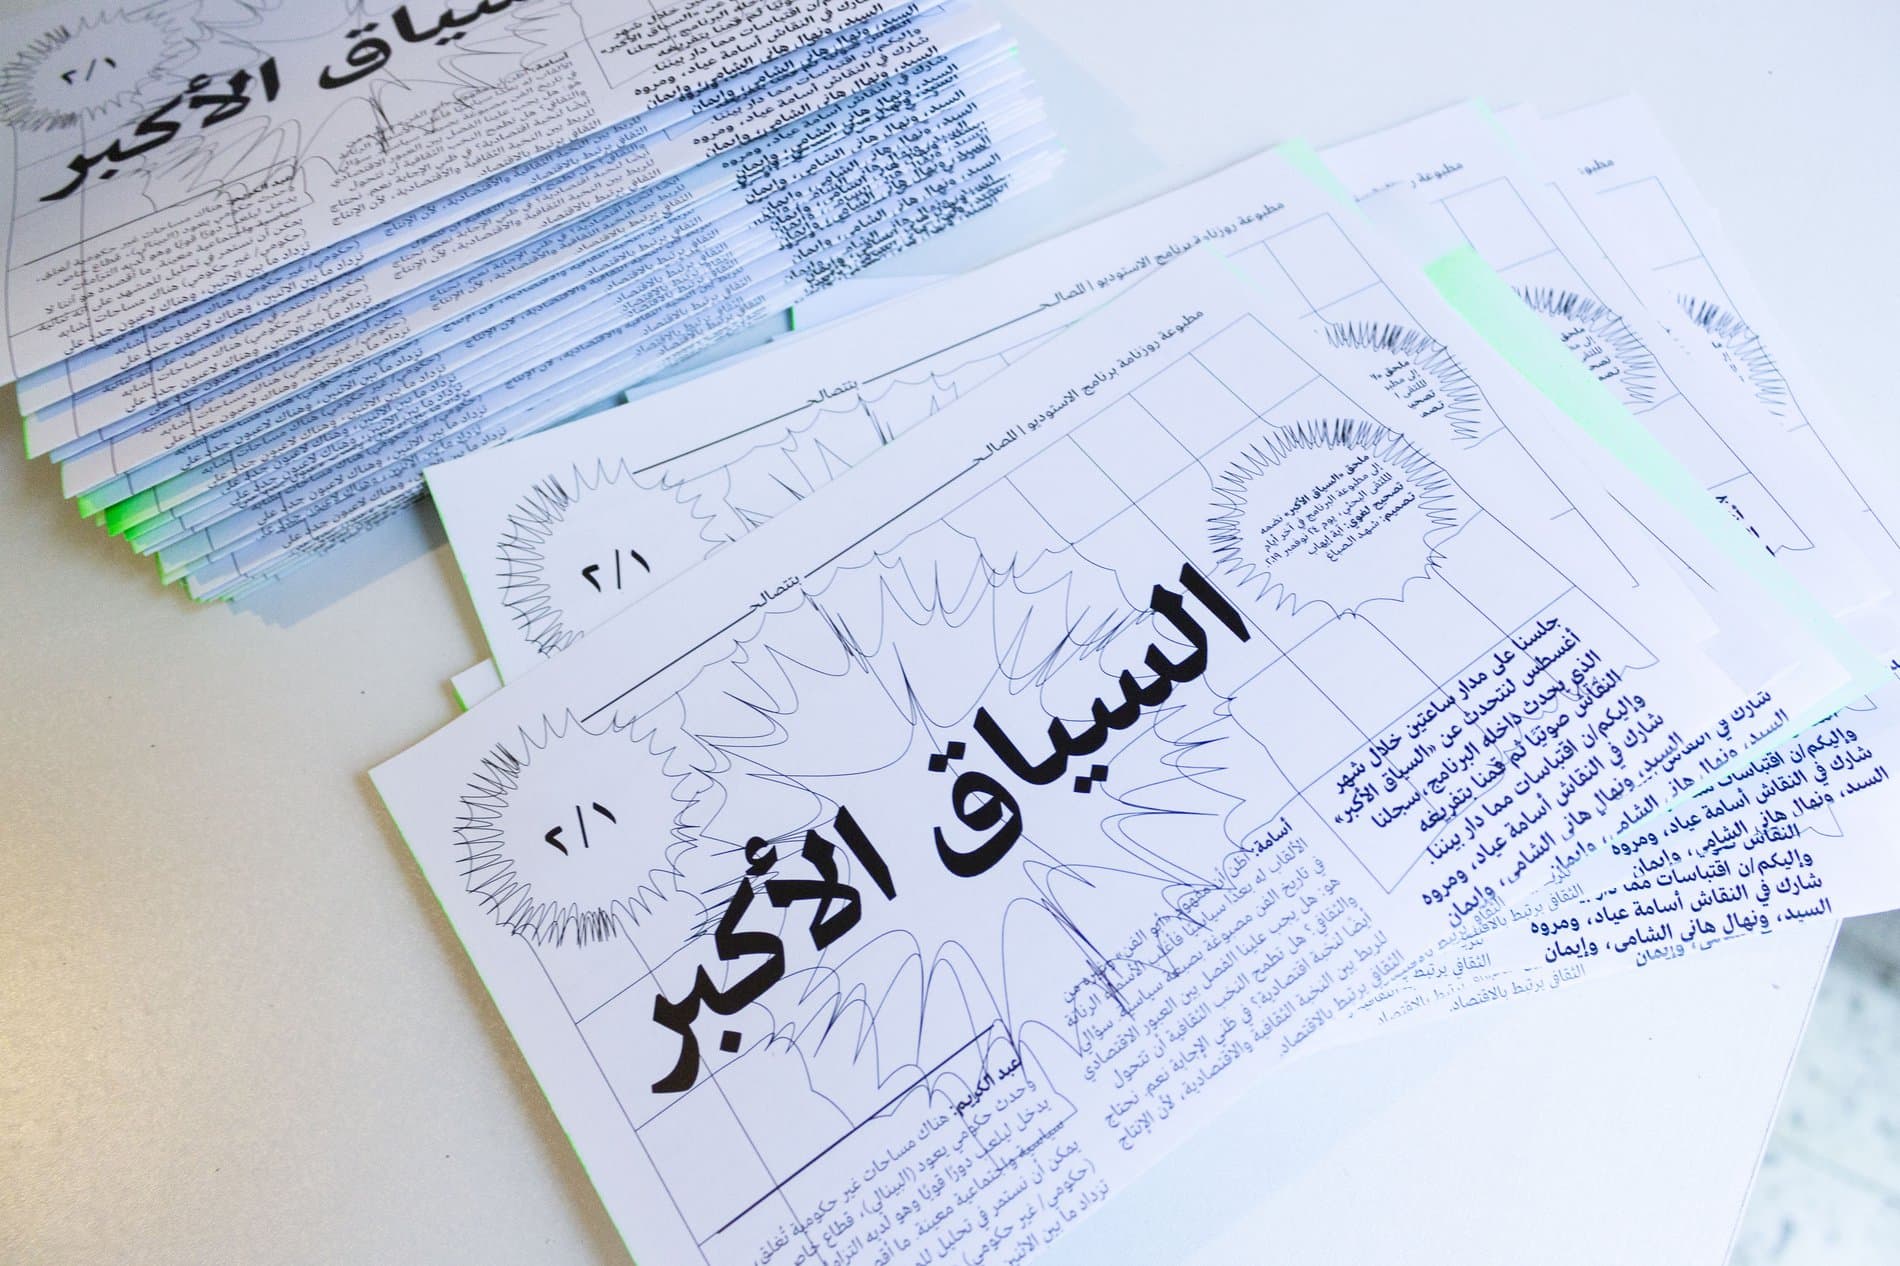 مطبوعة روزنامة برنامج الاستوديو | المصالحـــــ بتتصالحـــــ
ملحق «السياق الأكبر» نضمه
إلى مطبوعة البرنامج في آخر أيام
الملتقى البحثي، يوم ٢٤ نوفمبر ٢٠١٩.
تصحيح لغوي: آية إيهاب
تصميم: شهد الصباغ
٢/١
السياق الأكبر
جلسنا على مدار ساعتين خلال شهر
أغسطس لنتحدث عن «السياق الأكبر»
الذي يحدث داخله البرنامج، سجلنا
النقاش صوتيًا ثم قمنا بتفريغه
وإليكم/ن اقتباسات مما دار بيننا.
شارك في النقاش أسامة عياد، ومروه
السيد، ونهال هاني الشامي، وإيمان
أسامة: أظن أن مفهوم «أبو الفن» وغيره من
الألقاب له بعدًا سياسيًا فأغلب الأسماء الرنانة
في تاريخ الفن مصبوغة بصبغة سياسية. سؤالي
هو: هل يجب علينا الفصل بين العبور الاقتصادي
والثقافي؟ هل تطمح النخب الثقافية أن تتحول
أيضًا لنخبة اقتصادية؟ في ظني الإجابة نعم. نحتاج
للربط بين النخبة الثقافية والاقتصادية، لأن الإنتاج
الثقافي يرتبط بالاقتصاد.
عبد الكريم: هناك مساحات غير حكومية تُغلق،
وحدث حكومي يعود (البينالي)، قطاع خاص
يدخل ليلعب دورًا قويًا وهو لديه التزامات
سياسية واجتماعية معينة. ما أقصده هو أننا لا
يمكن أن نستمر في تحليل للمشهد على أنه ثنائية
(حكومي/ غير حكومي) هناك مساحات تشابه
تزداد ما بين الاثنين، وهناك لاعبون جدد على